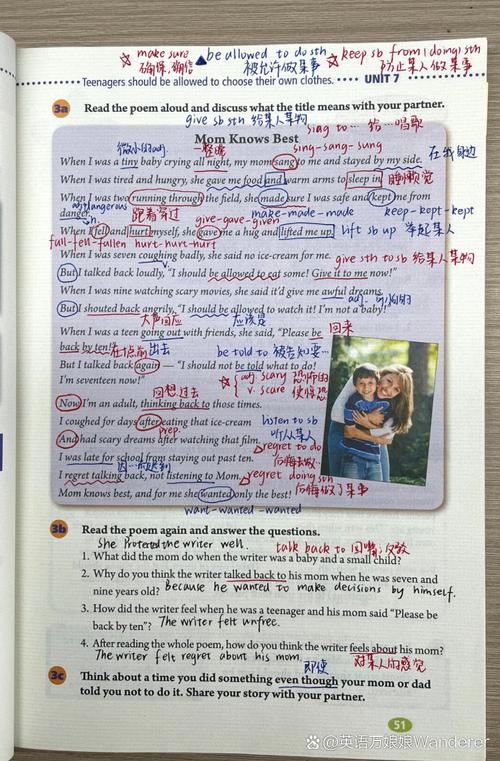 ☆ make sure ▲be allowed to do sth ☆keep sb from (doing) sth
确保,确信 被允许做某事 防止某人做某事
Teenagers should be allowed to choose their own clothes. UNIT 7
3a Read the poem aloud and discuss what the title means with your partner.
give sb sth 给某人某物
sing to… 给…唱歌
Mom Knows Best
微小的adj. 一整晚 sing-sang-sung 在我身边
When I was a tiny baby crying all night, my mom sang to me and stayed by my side.
When I was tired and hungry, she gave me food and warm arms to sleep in. 睡懒觉
When I was two running through the field, she made sure I was safe and kept me from
danger. adj.dangerous 跑着穿过 make-made-made keep-kept-kept
give-gave-given
When I fell and hurt myself, she gave me a hug and lifted me up. lift sb up 举起某人
fall-fell-fallen hurt-hurt-hurt
When I was seven coughing badly, she said no ice-cream for me. give sth to sb 给某人某物
But I talked back loudly, "I should be allowed to eat some! Give it to me now!"
When I was nine watching scary movies, she said it'd give me awful dreams.
adj.
But I shouted back angrily, "I should be allowed to watch it! I'm not a baby!"
大声回应 应该是
When I was a teen going out with friends, she said, "Please be 回来
back by ten!" 在十点前 出去 be told to 被告知要…
But I talked back again — "I should not be told what to do!
I'm seventeen now!" adj. scary 恐怖的
回想过去 v. scare 使惊恐
Now I'm an adult, thinking back to those times.
I coughed for days after eating that ice-cream listen to sb
prep. 听从某人
And had scary dreams after watching that film.
I was late for school from staying out past ten. regret to do
I regret talking back, not listening to Mom. regret doing sth
Mom knows best, and for me she wanted only the best! 后悔做了某事
want-wanted-wanted
3b Read the poem again and answer the questions.
She Proteted the writer well. talk back to 回嘴;反驳
1. What did the mom do when the writer was a baby and a small child?
2. Why do you think the writer talked back to his mom when he was seven and
nine years old? Because he wanted to make decisions by himself.
3. How did the writer feel when he was a teenager and his mom said "Please be
back by ten"? The writer felt unfree.
4. After reading the whole poem, how do you think the writer feels about his mom?
The writer felt regret about his mom. 即使 对某人的感觉
3c Think about a time you did something even though your mom or dad
told you not to do it. Share your story with your partner.
51
@英语万娘娘Wanderer